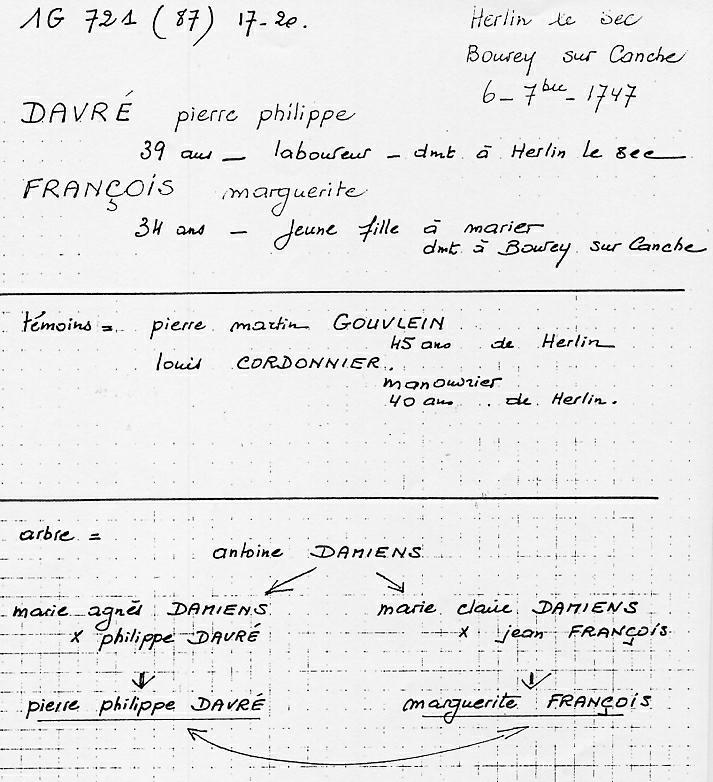 1G 721 (87) 17-20.
Herlin le Sec
Bourey sur Canche
6 - 7bre - 1747
DAVRÉ pierre philippe
39 ans - laboureur - dmt à Herlin le sec
FRANÇOIS marguerite
34 ans - jeune fille à marier
dmt à Bourey sur Canche
témoins = pierre martin GOUVLEIN
45 ans de Herlin
louis CORDONNIER.
manouvrier
40 ans de Herlin.
arbre =
antoine DAMIENS
marie agnès DAMIENS marie claire DAMIENS
x philippe DAVRÉ x jean FRANÇOIS
pierre philippe DAVRÉ marguerite FRANÇOIS